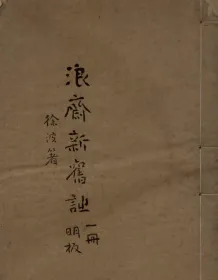 浪齋新舊詩
一冊
明板
徐波著